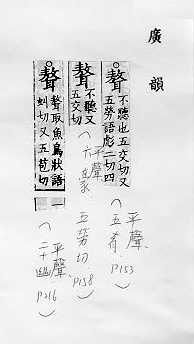 廣韻
聱 不聽也五交切又
五勞語彪二切四
（平聲
五肴 P153）
聱 不聽又
五交切
（平聲
六豪
五勞切
P158）
聱 聱取魚鳥狀語
虯切又五苟切
（平聲
二十幽
P216）